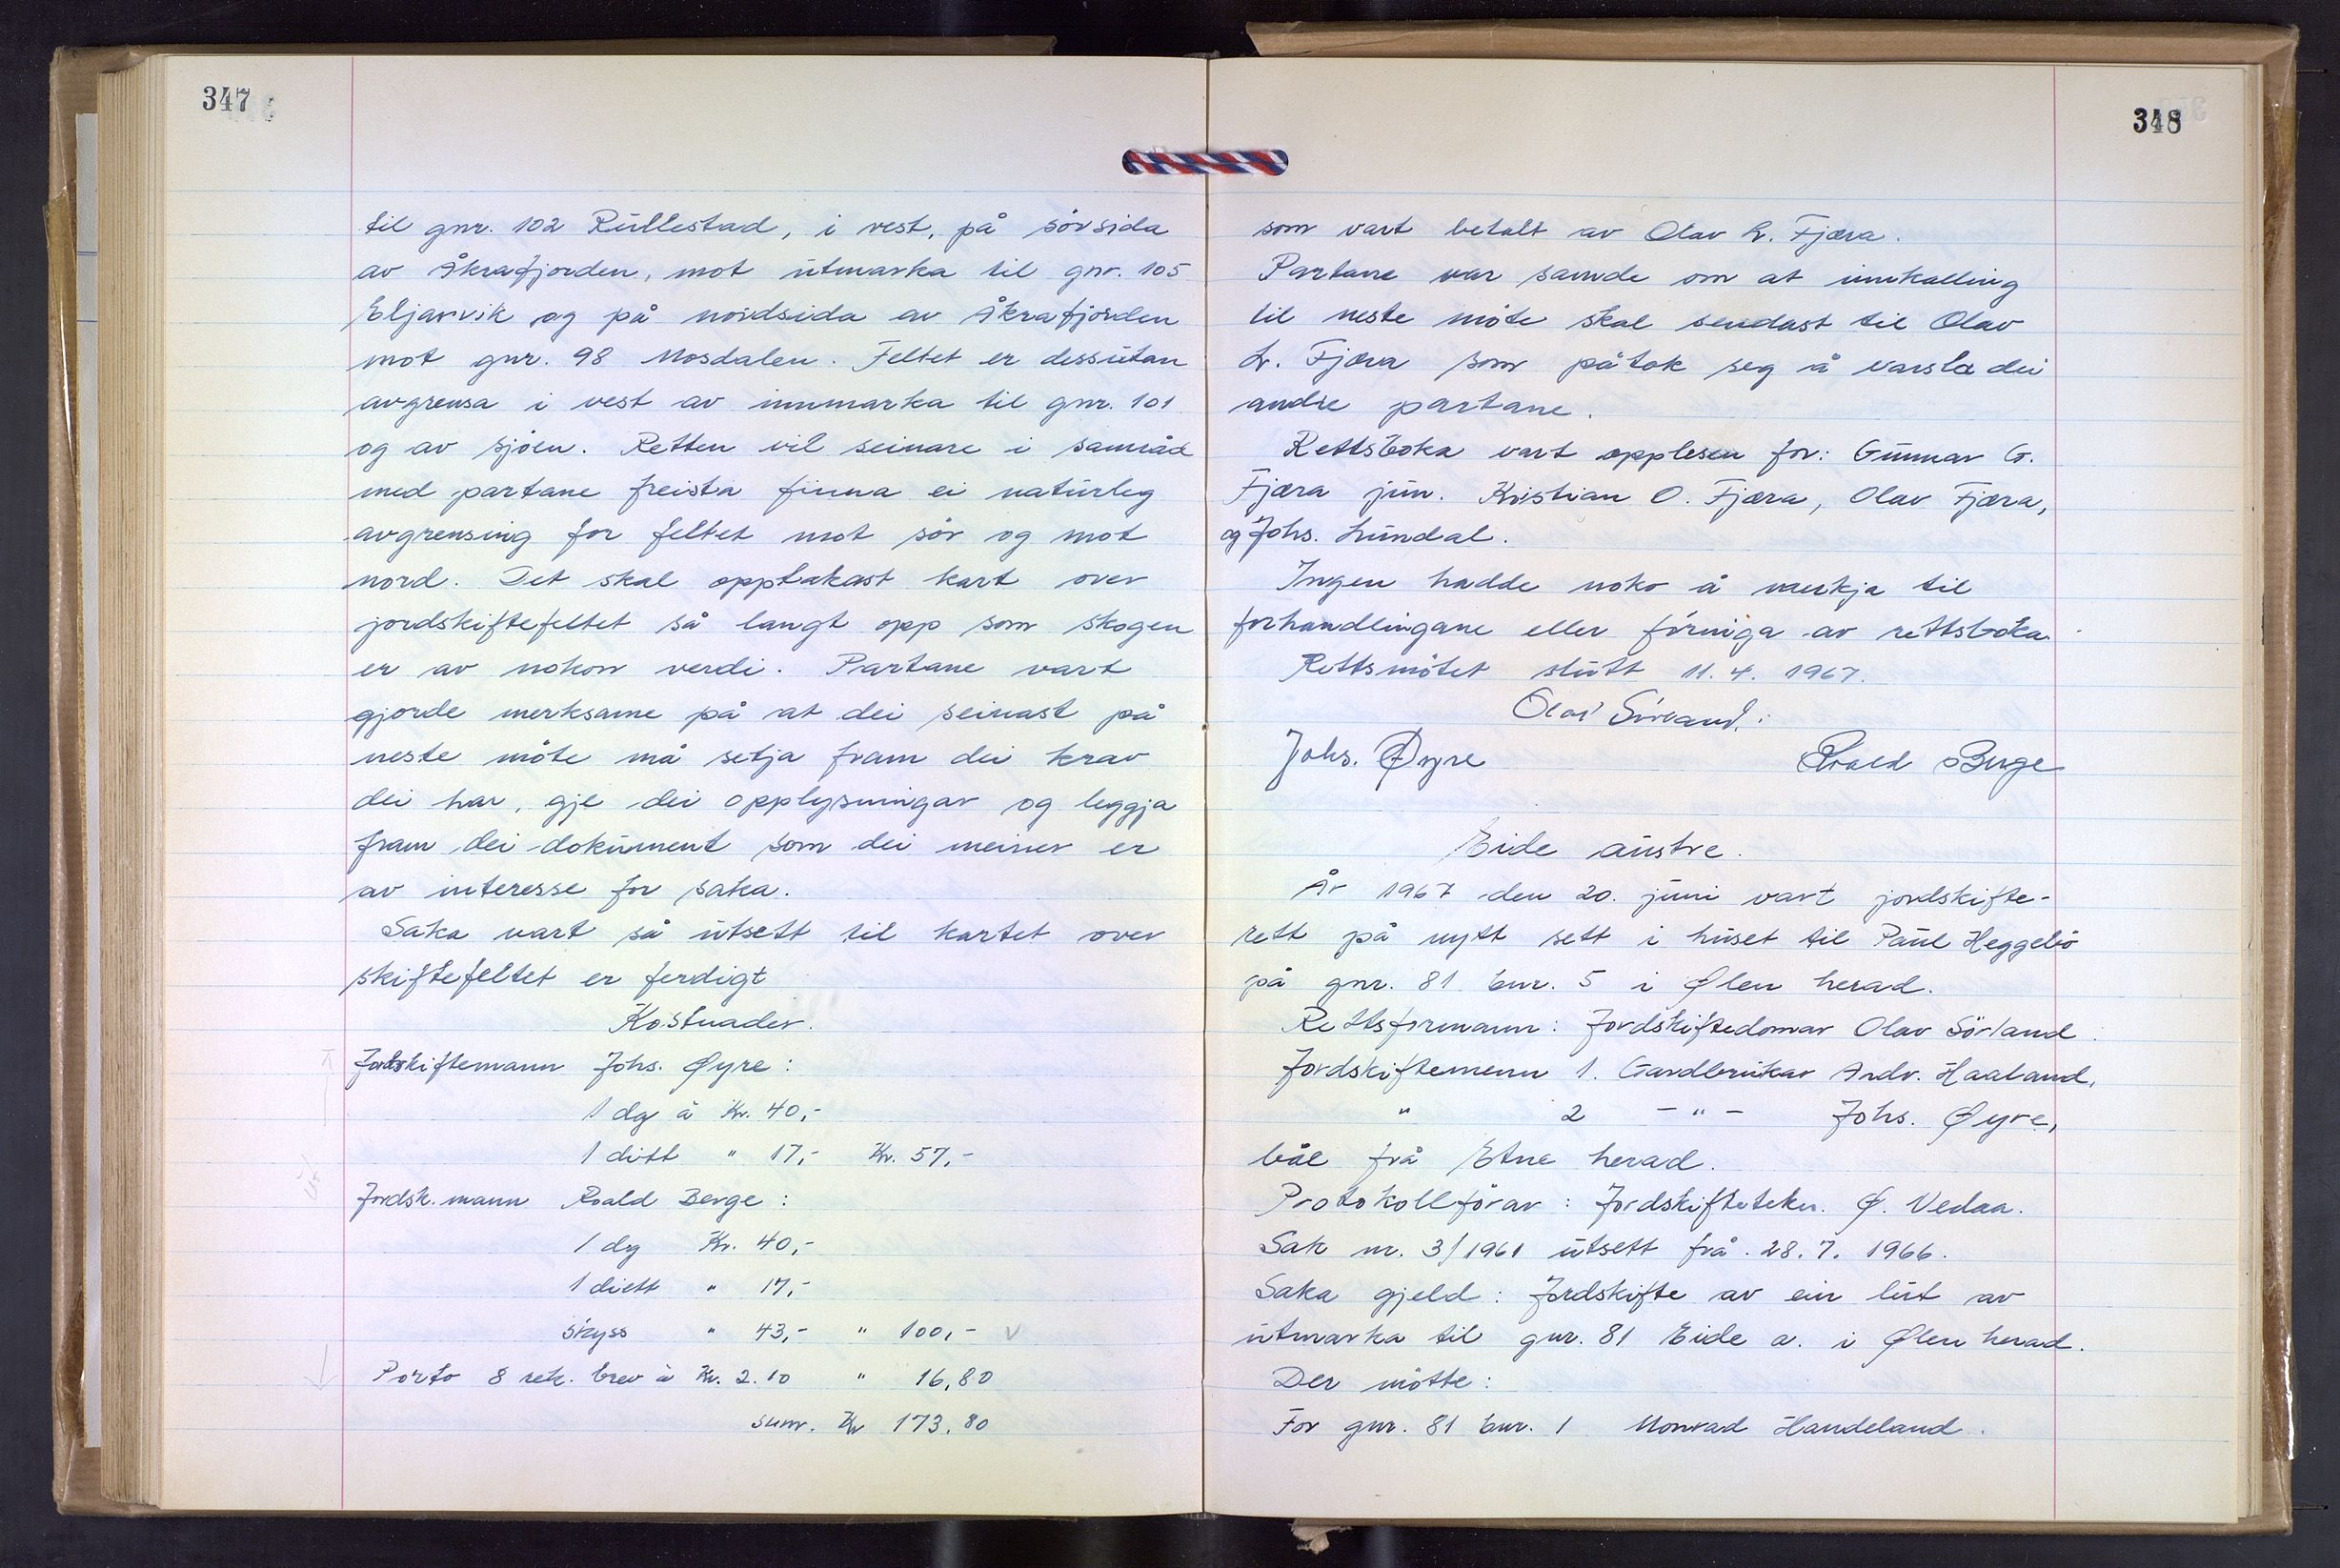 347
til gnr. 102 Rullestad, i vest, på sörsida
av Åkrafjorden, mot utmarka til gnr. 105
Eljarvik og på nordsida av Åkrafjorden
mot gnr. 98 Mosdalen. Feltet er dessutan
avgrensa i vest av innmarka til gnr. 101
og av sjöen. Retten vil seinare i samråd
med partane freista finna ei naturleg
avgrensing for feltet mot sör og mot
nord. Det skal opptakast kart over
jordskiftefeltet så langt opp som skogen
er av nokon verdi. Partane vart
gjorde merksame på at dei seinast på
neste möte må setja fram dei krav
dei har, gje dei opplysningar og leggja
fram dei dokument som dei meiner er
av interesse for saka.
Saka vart så utsett til kartet over
skiftefeltet er ferdigt
Kostnader.
Jordskiftemann Johs. Øyre:
1 dg à Kr. 40,-
1 ditt " 17,- Kr. 57,-
Jordsk.mann Roald Berge:
1 dg Kr. 40,-
1 diett " 17,-
Skyss " 43,- " 100,- v
Porto 8 rek. brev à Kr. 2.10 " 16,80
sum. Kr 173.80
348
som vart betalt av Olav L. Fjæra.
Partane var samde om at innkalling
til neste möte skal sendast til Olav
L. Fjæra som påtok seg å varsla dei
andre partane.
Rettsboka vart opplesen for: Gunnar G.
Fjæra jun. Kristian O. Fjæra, Olav Fjæra,
og Johs. Lundal.
Ingen hadde noko å merkja til
forhandlingane eller föringa av rettsboka.
Rettsmötet slutt 11.4. 1967.
Olav Sörland.
Johs. Øyre Roald Berge
Eide austre.
År 1967 den 20. juni vart jordskifte-
rett på nytt sett i huset til Paul Heggebö
på gnr. 81 bnr. 5 i Ølen herad.
Rettsformann: Jordskiftedomar Olav Sörland.
Jordskiftemenn 1. Gardbrukar Andr. Haaland,
" 2 - " - Johs. Øyre,
båe frå Etne herad.
Protokollförar: Jordskifteteku. Ø. Vedaa.
Sak nr. 3/1961 utsett frå 28.7. 1966.
Saka gjeld: Jordskifte av ein lut av
utmarka til gnr. 81 Eide a. i Ølen herad.
Der mötte:
For gnr. 81 bnr. 1 Monrad Handeland.